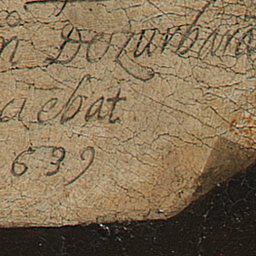 n Dezurbara
aebat
639